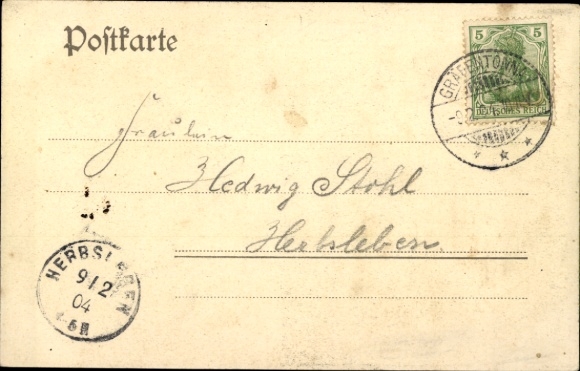 Postkarte
5 5
DEUTSCHES REICH
GRÄFENTONNA
Fräulein
Hedwig Stohl
Herbsleben
HERBSLEBEN
9/2
04